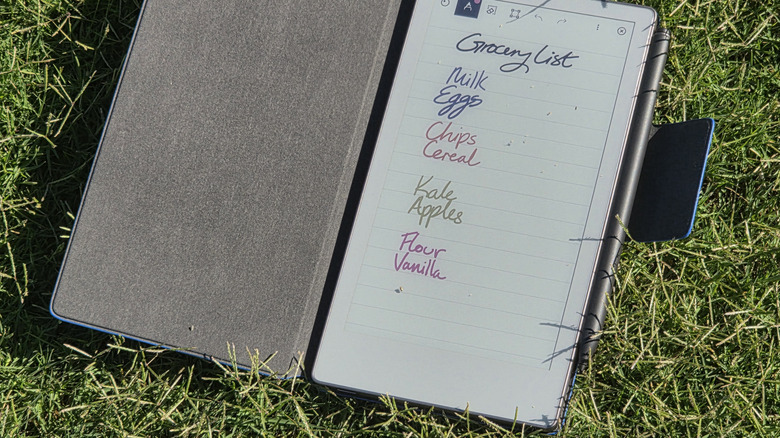 A
Grocery List
Milk
Eggs
Chips
Cereal
Kale
Apples
Flour
Vanilla